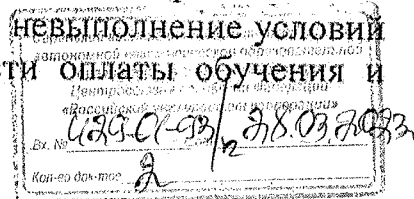 невыполнение условий
автономной
сти оплаты обучения и
Центросоюза Российской Федерации
«Российский университет кооперации»
Вх. № 429-01-93/п 28.03.2023
Кол-во док-тов 2